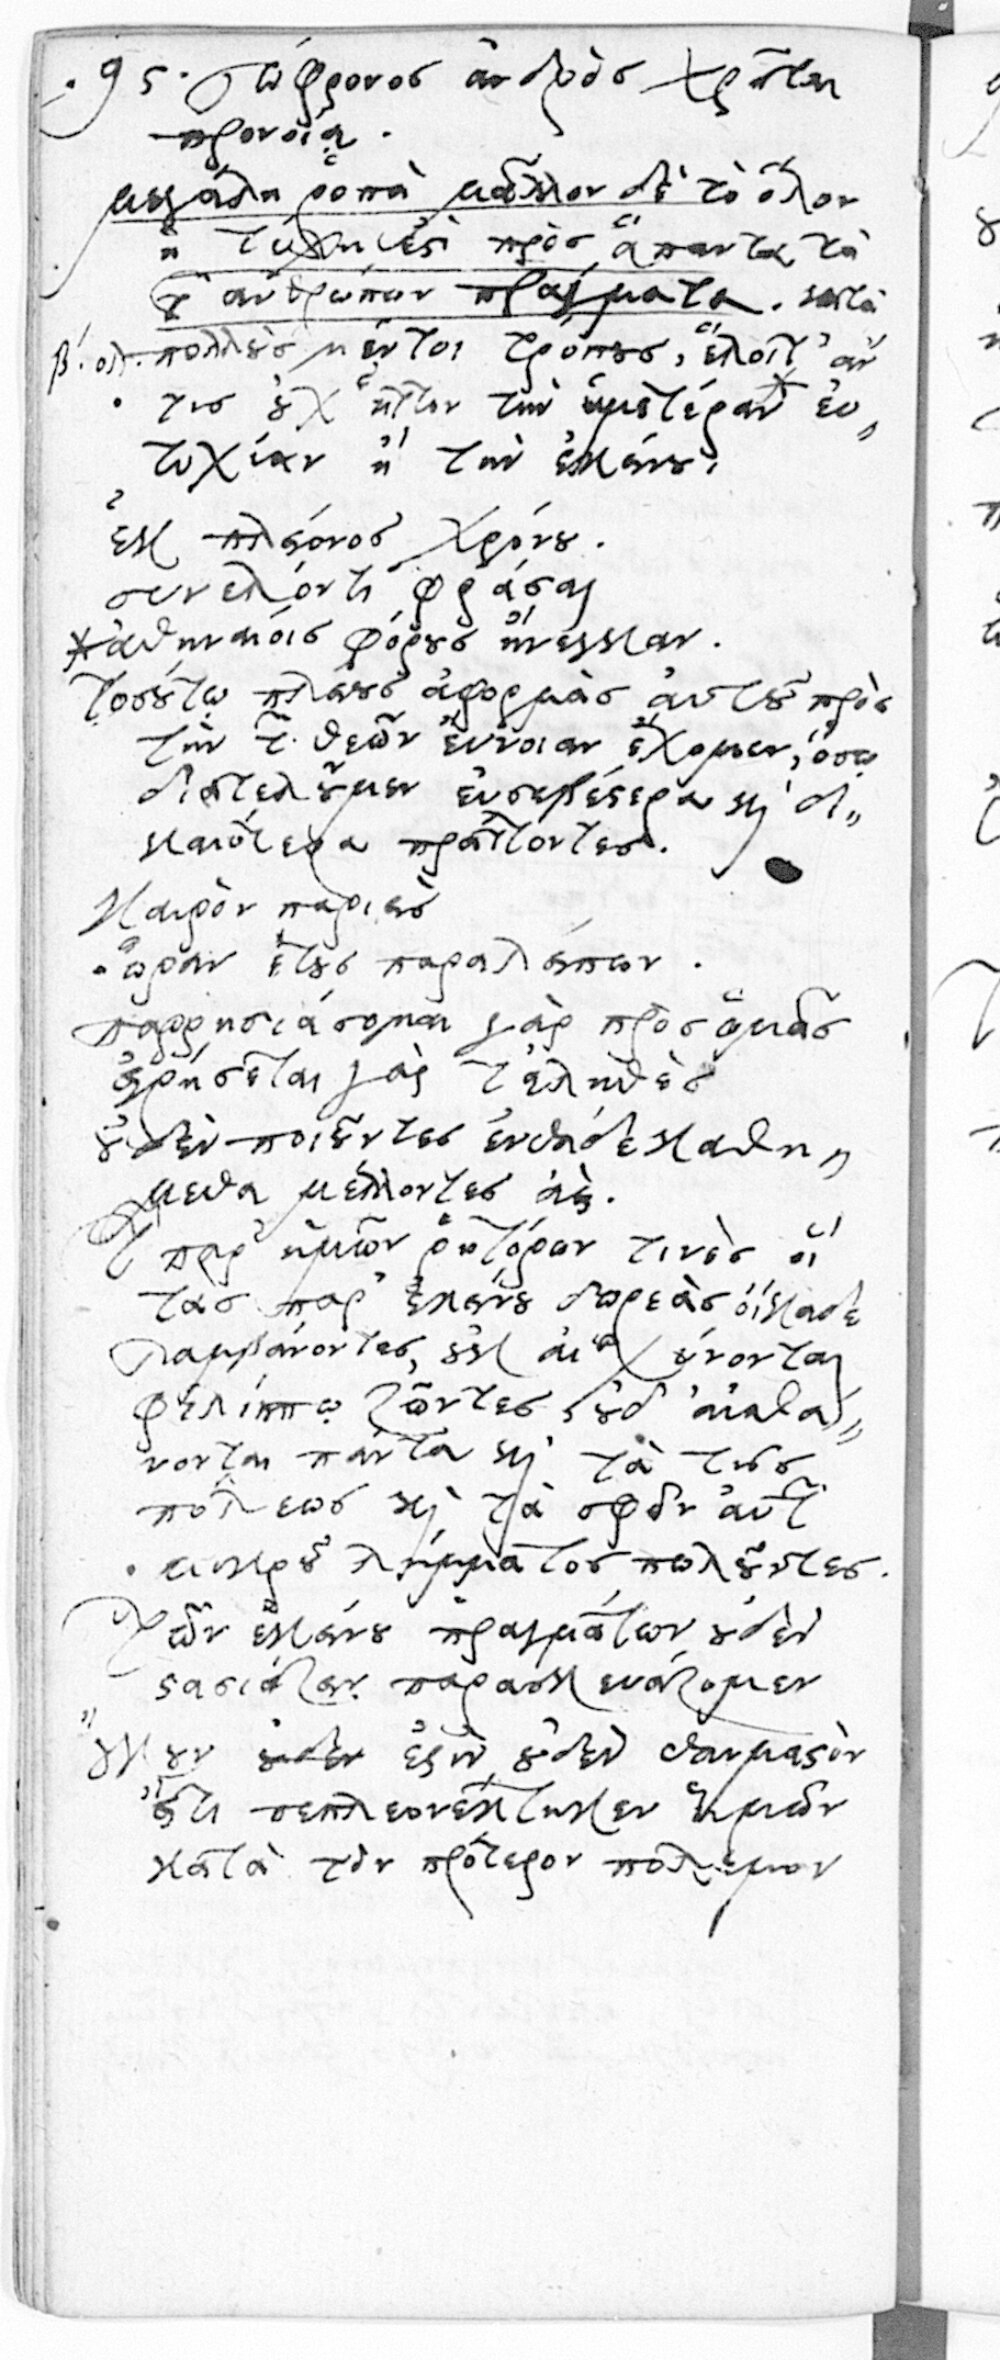 .95. σώφρονος ἀνδρὸς χρῆται
προνοίᾳ.
μεγάλη ῥοπὰ μᾶλλον δὲ τὸ ὅλον
ἡ τύχη ἐστὶ πρὸς ἅπαντα τὰ
τῶν ἀνθρώπων πράγματα. κατὰ
β΄. ὀλ. πολλοὺς μέντοι τρόπους, ἕλοιτ' ἄν
τις οὐχ ἧττον τὴν ἡμετέραν εὐ„
τυχίαν ἢ τὴν ἐκείνου.
ἐκ πλείονος χρόνου.
συνελόντι φράσαι
*ἀθηναίοις φόρους ἤνεγκαν.
Τοσούτῳ πλείους ἀφορμὰς αὐτοῦ πρὸς
τὴν τῶν θεῶν εὔνοιαν ἔχομεν, ὅσῳ
διατελοῦμεν εὐσεβέστερα καὶ δι„
καιότερα πράττοντες.
καιρὸν παριεὶς
ὥραν ἔτους παραλείπων.
παρρησιάσομαι γὰρ πρὸς ὑμᾶς
εἰρήσεται γὰρ τἀληθὲς
οὐδὲν ποιοῦντες ἐνθάδε καθή„
μεθα μέλλοντες ἀεὶ.
τῶν παρ' ἡμῶν ῥητόρων τινὲς οἳ
τὰς παρ' ἐκείνου δωρεὰς οἴκαδε
λαμβάνοντες, οὐκ αἰσχύνονται
φιλίππῳ ζῶντες, οὐδ' αἰσθά„
νονται πάντα καὶ τὰ τῆς
πόλεως καὶ τὰ σφῶν αὐτῶν
μικροῦ λήμματος πωλοῦντες.
Τῶν ἐκείνου πραγμάτων οὐδὲν
στασιάζειν παρασκευάζομεν
οὔκουν οὐδὲν ἐστὶν οὐδὲν θαυμαστὸν
ὅτι πεπλεονέκτηκεν ἡμῶν
κατὰ τὸν πρότερον πόλεμον